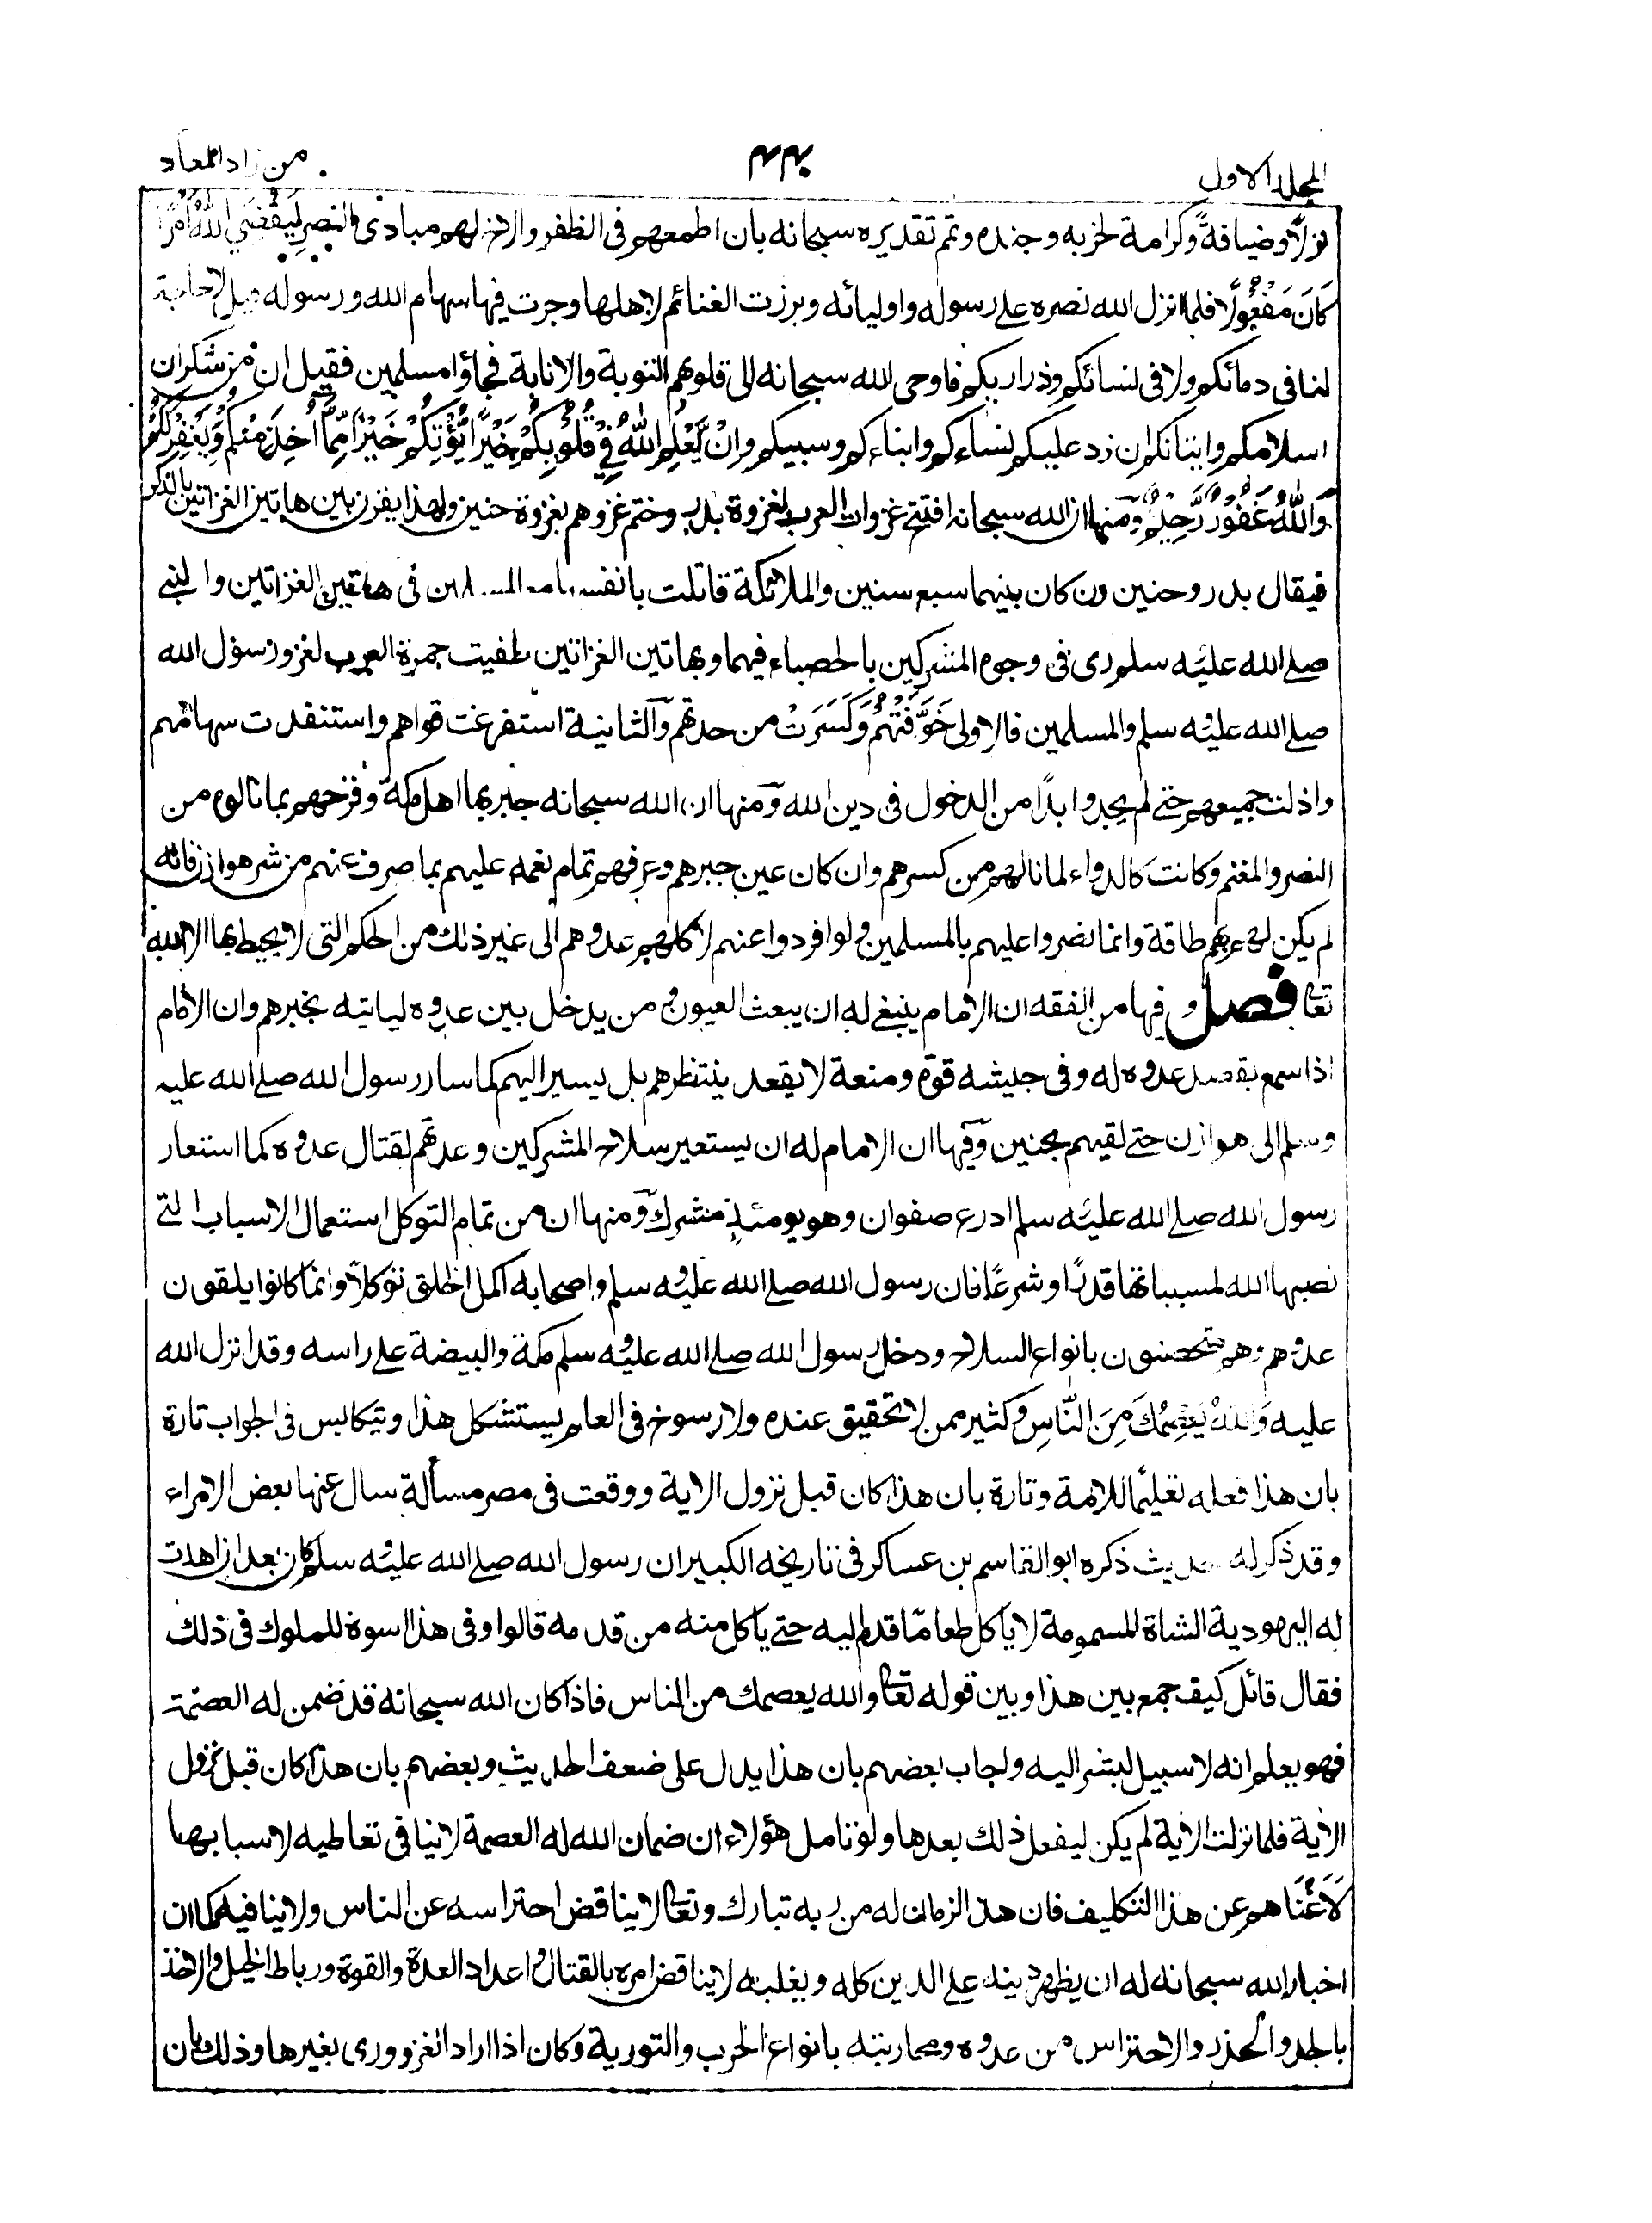 المجلد الاول
٤٤٠
من زاد المعاد
نزلاً وضيافةً وكرامة لحزبه وجنده وتمم تقديره سبحانه بان اطمعهم في الظفر والاح لهم مبادي النصر لِيَقْضِيَ اللّٰهُ اَمْرًا
كَانَ مَفْعُوْلًا فلما انزل الله نصره على رسوله واوليائه وبرزت الغنائم لاهلها وجرت فيها سهام الله ورسوله قيل لا حاجة
لنا في دمائكم ولا في نسائكم وذراريكم فاوحى الله سبحانه الى قلوبهم التوبة والانابة فجاؤا مسلمين فقيل ان من شكران
اسلامكم واتيانكم ان نرد عليكم نساءكم وابناءكم وسبيكم وانْ يَّعْلَمِ اللّٰهُ فِيْ قُلُوْبِكُمْ خَيْرًا يُّؤْتِكُمْ خَيْرًا مِّمَّا اُخِذَ مِنْكُمْ وَيَغْفِرْ لَكُمْ
وَاللّٰهُ غَفُوْرٌ رَّحِيْمٌ ومنها ان الله سبحانه افتتح غزوات العرب بغزوة بدر وختم غزوهم بغزوة حنين ولهذا يقرن بين هاتين الغزاتين بالذكر
فيقال بدر وحنين وان كان بينهما سبع سنين والملائكة قاتلت بانفسها مع المسلمين في هاتين الغزاتين والنبي
صلى الله عليه وسلم رمى في وجوه المشركين بالحصباء فيهما وبهاتين الغزاتين طفيت جمرة العرب لغزو رسول الله
صلى الله عليه وسلم والمسلمين فالاولى خَوَّفَتْهُمْ وَكَسَرَتْ من حدتهم والثانية استفرغت قواهم واستنفدت سهامهم
واذلت جميعهم حتى لم يجدوا بدًا من الدخول في دين الله ومنها ان الله سبحانه جبر بها اهل مكة وفرحهم بما نالوه من
النصر والمغنم وكانت كالدواء لما نالهم من كسرهم وان كان عين جبرهم وعرفهم تمام نعمه عليهم بما صرف عنهم من شر هوازن فانه
لم يكن لهم بهم طاقة وانما نصروا عليهم بالمسلمين ولو افردوا عنهم لاكلهم عدوهم الى غير ذلك من الحكم التي لا يحيط بها الا الله
تعا فصل وفيها من الفقه ان الامام ينبغي له ان يبعث العيون ومن يدخل بين عدوه لياتيه بخبرهم وان الامام
اذا سمع بقصد عدوه له وفي جيشه قوة ومنعة لا يقعد ينتظرهم بل يسير اليهم كما سار رسول الله صلى الله عليه
وسلم الى هوازن حتى لقيهم بحنين وفيها ان الامام له ان يستعير سلاح المشركين وعدتهم لقتال عدوه كما استعار
رسول الله صلى الله عليه وسلم ادرع صفوان وهو يومئذٍ مشرك ومنها ان من تمام التوكل استعمال الاسباب التي
نصبها الله لمسبباتها قدرًا وشرعًا فان رسول الله صلى الله عليه وسلم واصحابه اكمل الخلق توكلاً وانما كانوا يلقون
عدوهم وهم متحصنون بانواع السلاح ودخل رسول الله صلى الله عليه وسلم مكة والبيضة على راسه وقد انزل الله
عليه وَاللّٰهُ يَعْصِمُكَ مِنَ النَّاسِ وكثير ممن لا تحقيق عنده ولا رسوخ في العلم يستشكل هذا ويتكايس في الجواب تارة
بان هذا فعله تعليمًا للامة وتارة بان هذا كان قبل نزول الاية ووقعت في مصر مسألة سال عنها بعض الامراء
وقد ذكر له حديث ذكره ابو القاسم بن عساكر في تاريخه الكبير ان رسول الله صلى الله عليه وسلم كان بعد ان اهدت
له اليهودية الشاة المسمومة لا ياكل طعامًا قدم اليه حتى ياكل منه من قدمه قالوا وفي هذا اسوة للملوك في ذلك
فقال قائل كيف جمع بين هذا وبين قوله تعا والله يعصمك من الناس فاذا كان الله سبحانه قد ضمن له العصمة
فهو يعلم انه لا سبيل لبشر اليه واجاب بعضهم بان هذا يدل على ضعف الحديث وبعضهم بان هذا كان قبل نزول
الاية فلما نزلت الاية لم يكن ليفعل ذلك بعدها ولو تامل هؤلاء ان ضمان الله له العصمة لا ينافي تعاطيه لاسبابها
لَاَغْنَاهم عن هذا التكليف فان هذا الزمان له من ربه تبارك وتعا لا يناقض احتراسه عن الناس ولا ينافيه كما ان
اخبار الله سبحانه له ان يظهر دينه على الدين كله ويغلبه لا يناقض امره بالقتال واعداد العدة والقوة ورباط الخيل والاخذ
بالجد والحذر والاحتراس من عدوه ومحاربته بانواع الحرب والتورية وكان اذا اراد الغزو ورى بغيرها وذلك بان